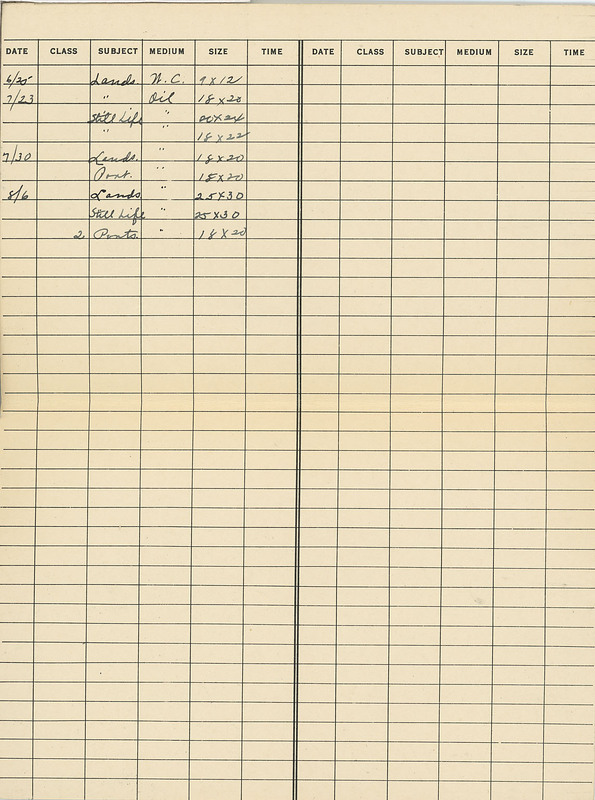 DATE CLASS SUBJECT MEDIUM SIZE TIME DATE CLASS SUBJECT MEDIUM SIZE TIME
6/25 Lands. W.C. 9 x 12
7/23 " Oil 18 x 20
Still Life " 20 x 24
" " 18 x 22
7/30 Lands. " 18 x 20
Port. " 18 x 20
8/6 Lands " 25 x 30
Still Life " 25 x 30
2 Ports. " 18 x 20